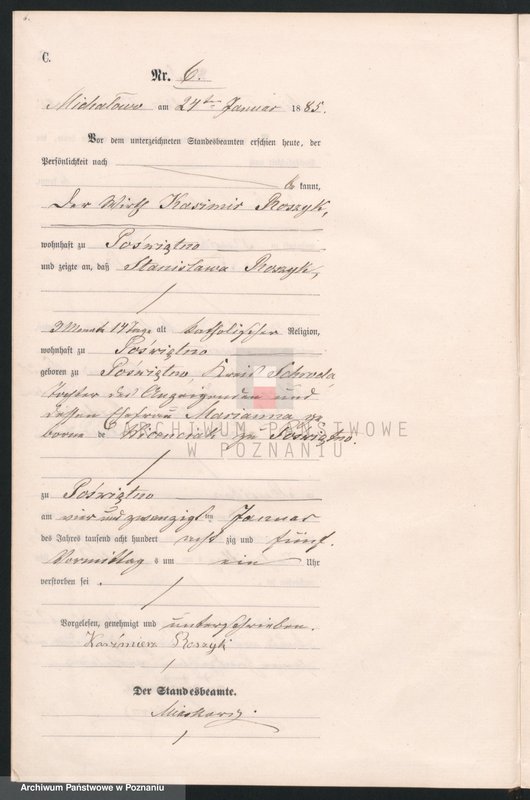 C.
Nr. 6.
Michałowo am 24ten Januar 1885.
Vor dem unterzeichneten Standesbeamten erschien heute, der
Persönlichkeit nach
be kannt,
der Wirth Kasimir Roszyk,
wohnhaft zu Poświętno
und zeigte an, daß Stanislawa Roszyk,
3 Monate 17 Tage alt katholischer Religion,
wohnhaft zu Poświętno
geboren zu Poświętno, Kreis Schroda,
Tochter des Anzeigenden und
dessen Ehefrau Marianna ge
borene de zu Poświętno.
ARCHIWUM PAŃSTWOWE
W POZNANIU
zu Poświętno
am vier und zwanzigsten Januar
des Jahres tausend acht hundert acht zig und fünf.
Vormittags um ein Uhr
verstorben sei.
Vorgelesen, genehmigt und unterschrieben.
Kazimierz Roszyk
Der Standesbeamte.
Archiwum Państwowe w Poznaniu